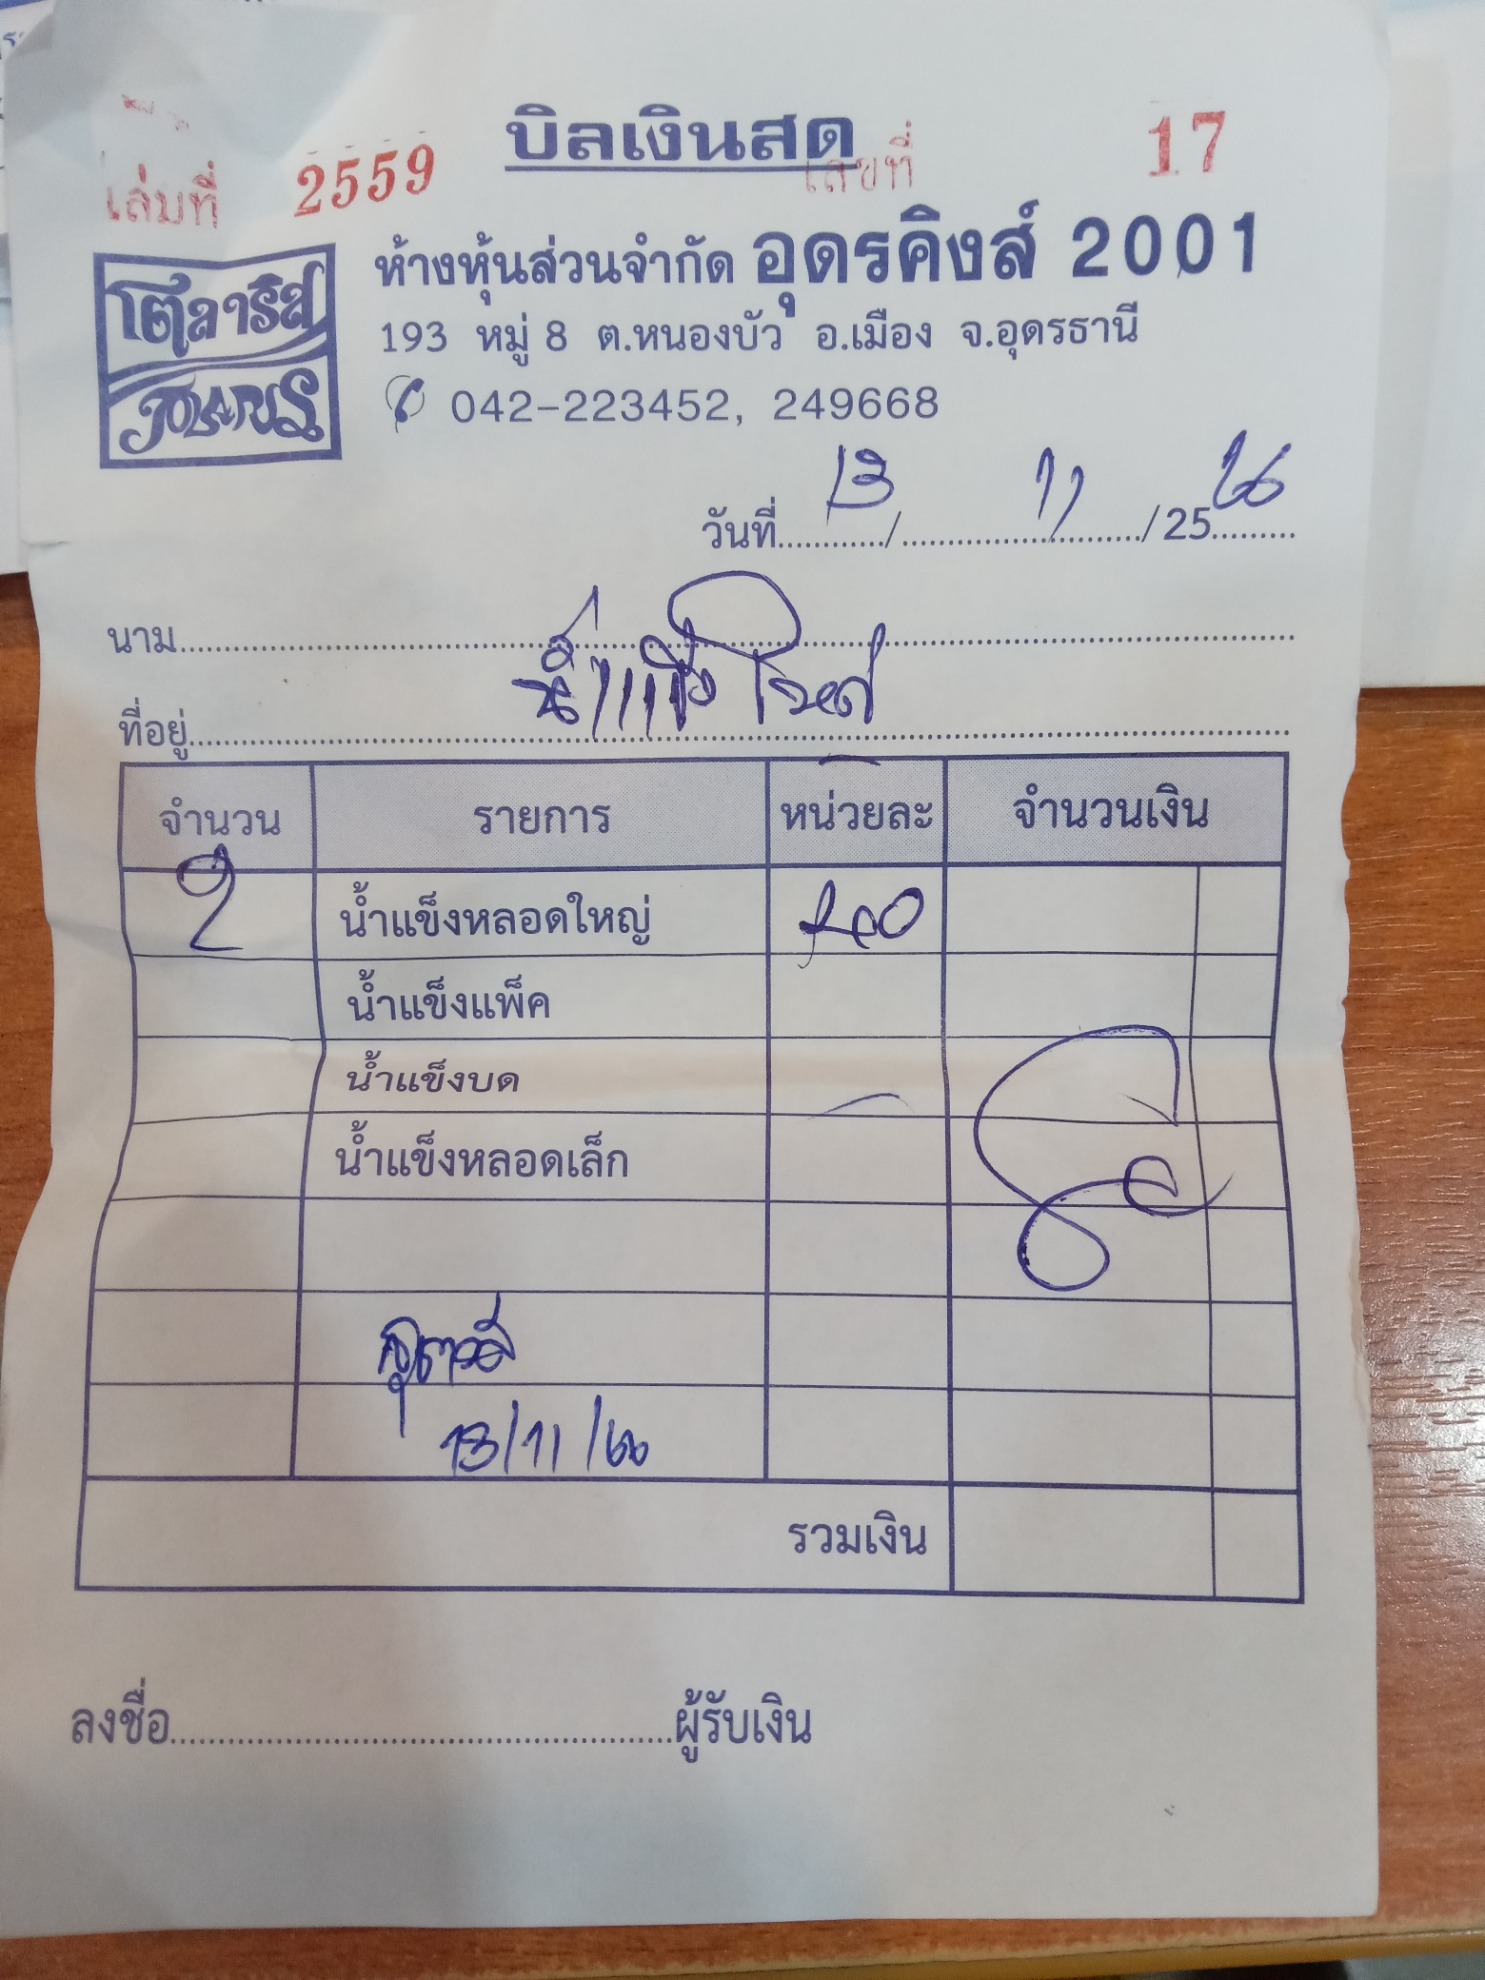 บิลเงินสด
เล่มที่ 2559 เลขที่ 17
โตลาริส
ห้างหุ้นส่วนจำกัด อุดรคิงส์ 2001
193 หมู่ 8 ต.หนองบัว อ.เมือง จ.อุดรธานี
042-223452, 249668
วันที่ 13 / 11 / 25 66
นาม
ที่อยู่
จำนวน รายการ หน่วยละ จำนวนเงิน
2 น้ำแข็งหลอดใหญ่
น้ำแข็งแพ็ค
น้ำแข็งบด
น้ำแข็งหลอดเล็ก
13/11/66
รวมเงิน
ลงชื่อ ผู้รับเงิน